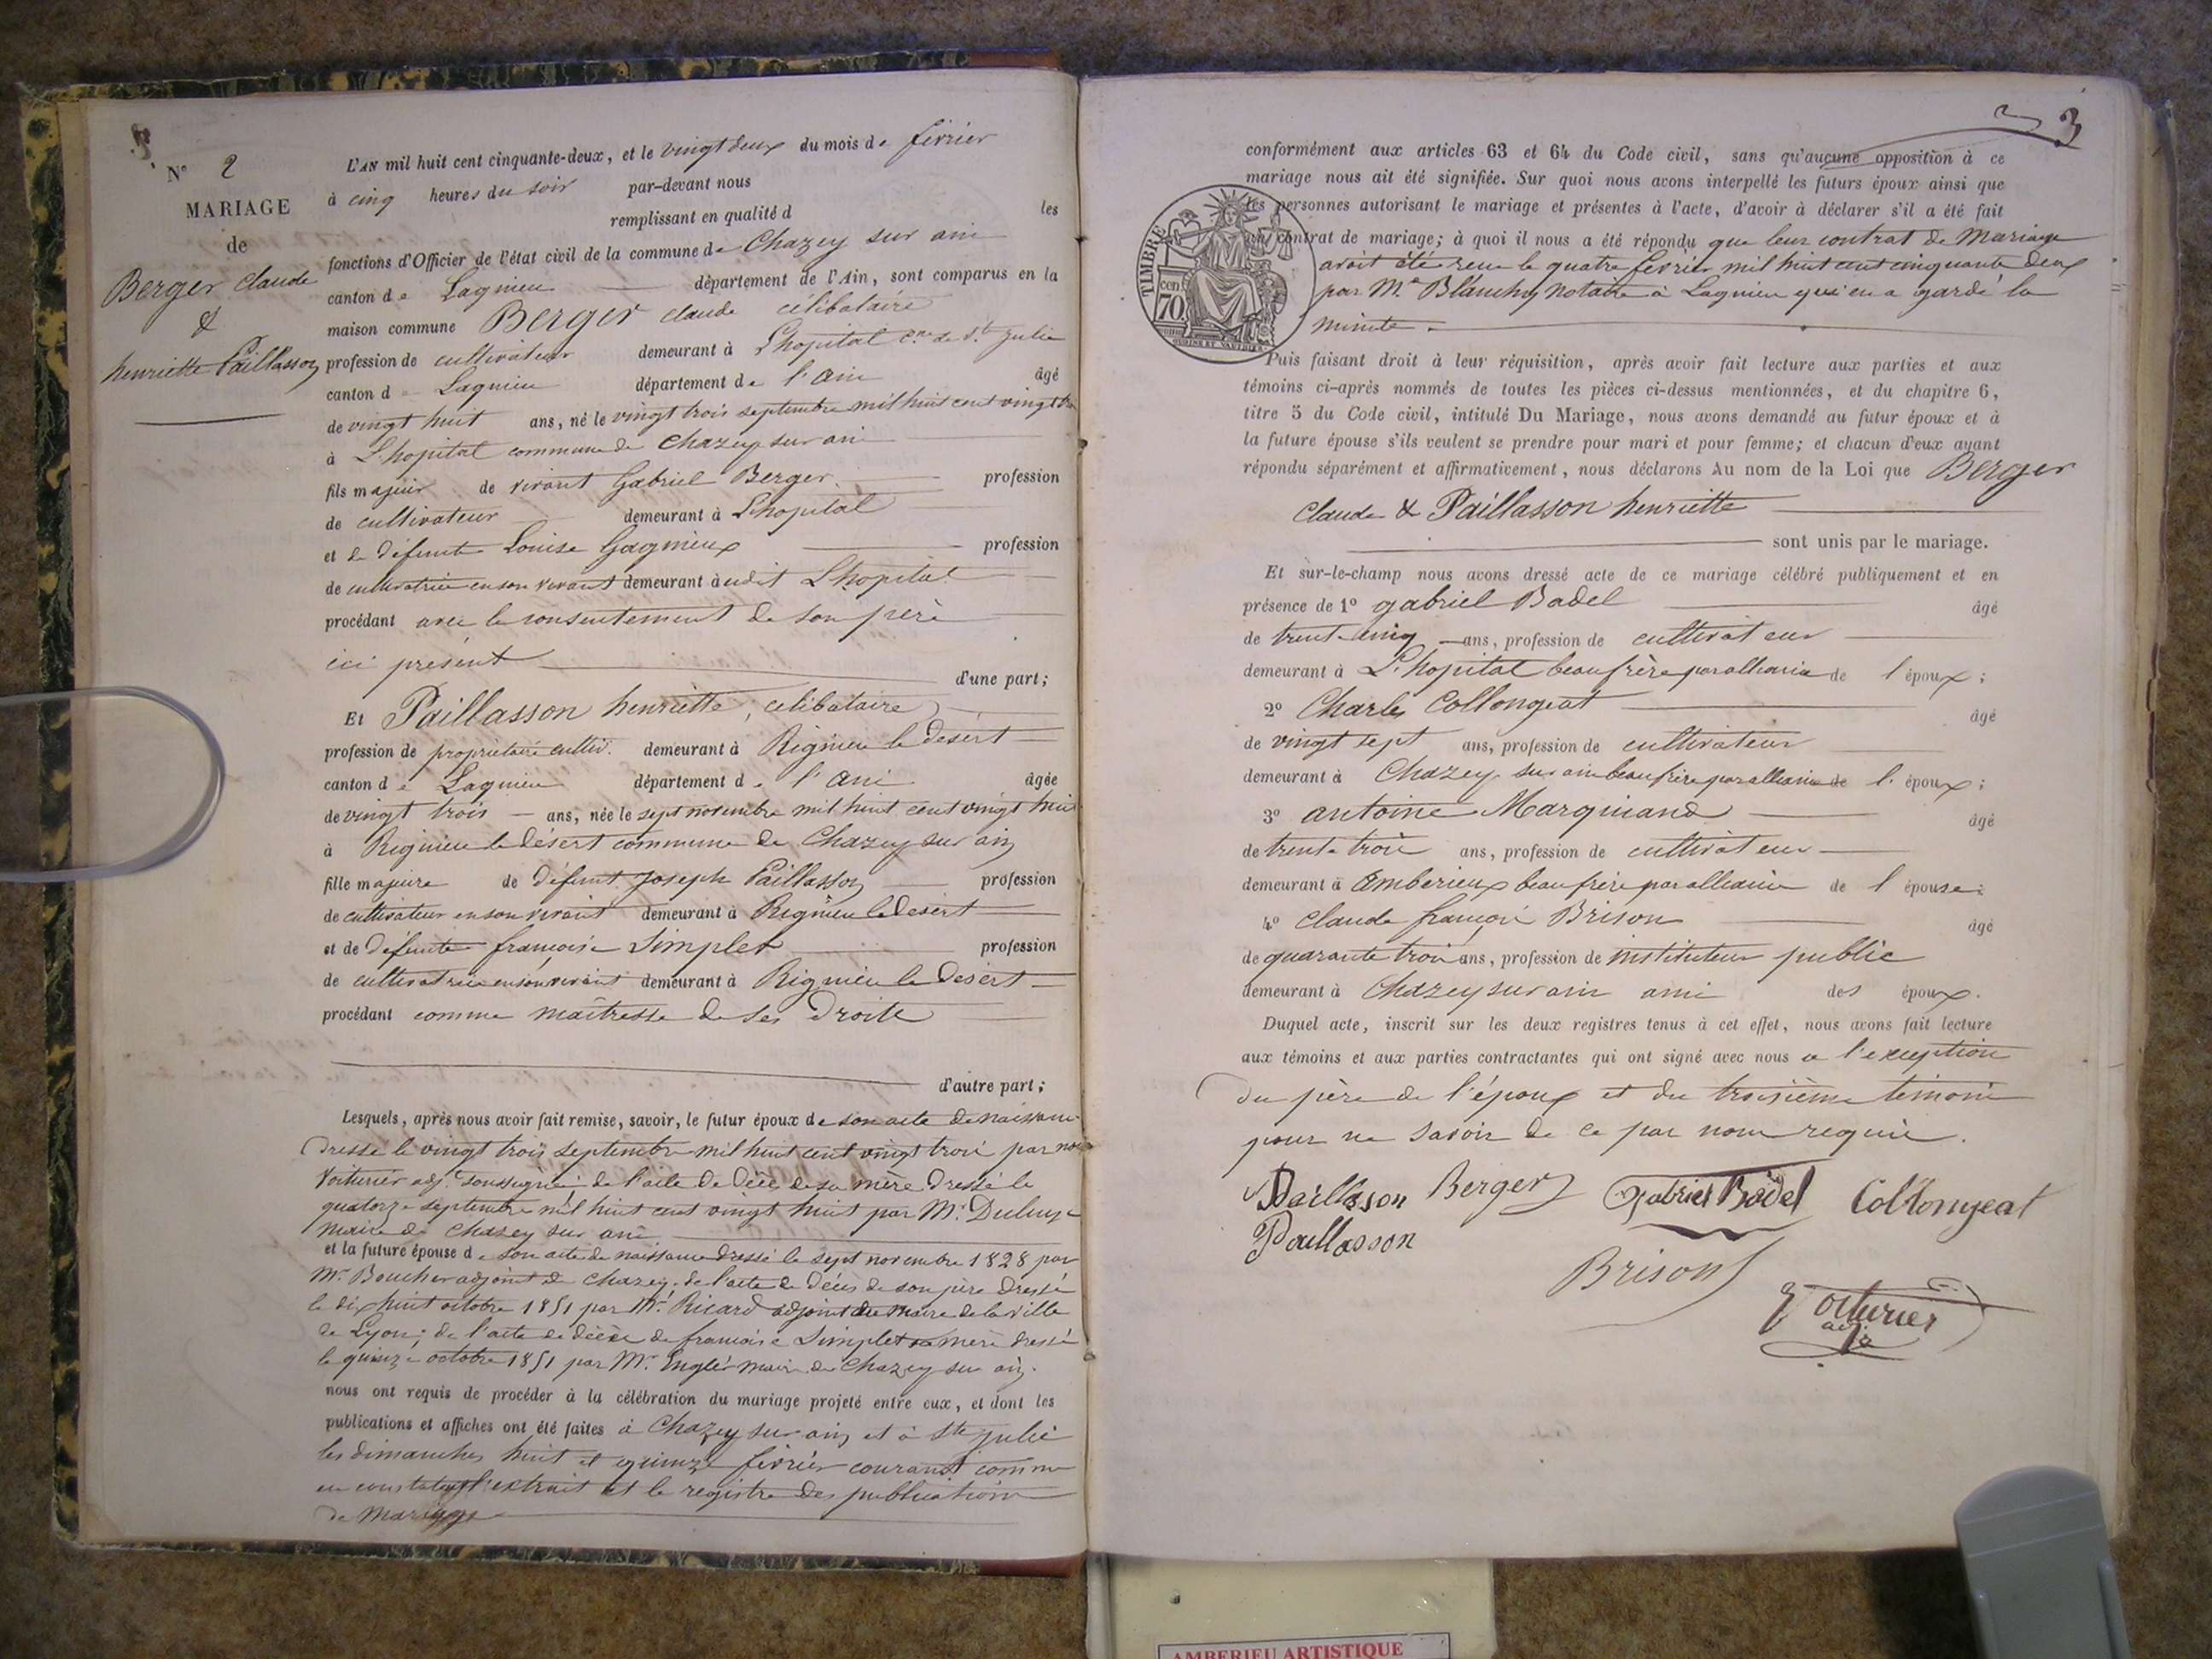 N° 2
MARIAGE
de
Berger Claude
&
henriette Paillasson
L'AN mil huit cent cinquante-deux, et le vingt deux du mois de février
à cinq heures du soir par-devant nous
remplissant en qualité d les
fonctions d'Officier de l'état civil de la commune de Chazey sur ain
canton de Lagnieu département de l'Ain, sont comparus en la
maison commune Berger claude célibataire
profession de cultivateur demeurant à L'hopital cne de Ste Julie
canton d Lagnieu département de l'ain âgé
de vingt huit ans, né le vingt trois septembre mil huit cent vingt
à L'hopital commune de Chazey sur ain
fils majeur de vivant Gabriel Berger profession
de cultivateur demeurant à L'hopital
et de défunte Louise Gagnieux profession
de cultivatrice en son vivant demeurant à audit L'hopital
procédant avec le consentement de son père
ici présent
d'une part;
Et Paillasson henriette, célibataire
profession de propriétaire cultiv. demeurant à Rignieu le désert
canton de Lagnieu département de l'ain âgée
de vingt trois ans, née le sept novembre mil huit cent vingt huit
à Rignieu le désert commune de Chazey sur ain
fille majeure de défunt Joseph Paillasson profession
de cultivateur en son vivant demeurant à Rignieu le Désert
et de Défunte françoise Simplet profession
de cultivatrice en son vivant demeurant à Rignieu le Désert
procédant comme maîtresse de ses Droits
d'autre part;
Lesquels, après nous avoir fait remise, savoir, le futur époux de son acte de naissance
dressé le vingt trois septembre mil huit cent vingt trois par nous
Voiturier adj. soussigné; de l'acte de décès de sa mère dressé le
quatorze septembre mil huit cent vingt huit par Mr
maire de Chazey sur ain
et la future épouse de son acte de naissance dressé le sept novembre 1828 par
Mr Boucher adjoint de Chazey; de l'acte de décès de son père dressé
le dix huit octobre 1851 par Mr. Ricard adjoint du maire de la ville
de Lyon; de l'acte de décès de françoise Simplet sa mère dressé
le quinze octobre 1851 par Mr. Englès maire de Chazey sur ain.
nous ont requis de procéder à la célébration du mariage projeté entre eux, et dont les
publications et affiches ont été faites à Chazey sur ain et à Ste Julie
les dimanches huit et quinze février courant comme
en constatent l'extrait et le registre des publications
de Mariage
3
conformément aux articles 63 et 64 du Code civil, sans qu'aucune opposition à ce
mariage nous ait été signifiée. Sur quoi nous avons interpellé les futurs époux ainsi que
les personnes autorisant le mariage et présentes à l'acte, d'avoir à déclarer s'il a été fait
un contrat de mariage; à quoi il nous a été répondu que leur contrat de Mariage
avait été reçu le quatre février mil huit cent cinquante deux
par Me Blanchy Notaire à Lagnieu qui en a gardé la
minute.
TIMBRE
cen
70
Puis faisant droit à leur réquisition, après avoir fait lecture aux parties et aux
témoins ci-après nommés de toutes les pièces ci-dessus mentionnées, et du chapitre 6,
titre 5 du Code civil, intitulé Du Mariage, nous avons demandé au futur époux et à
la future épouse s'ils veulent se prendre pour mari et pour femme; et chacun d'eux ayant
répondu séparément et affirmativement, nous déclarons Au nom de la Loi que Berger
Claude & Paillasson henriette
sont unis par le mariage.
Et sur-le-champ nous avons dressé acte de ce mariage célébré publiquement et en
présence de 1° gabriel Badel âgé
de trente cinq ans, profession de cultivateur
demeurant à L'hopital beaufrère par alliance de l'époux;
2° Charles Collongeat âgé
de vingt sept ans, profession de cultivateur
demeurant à Chazey sur ain beaufrère par alliance de l'époux;
3° antoine Marquiand âgé
de trente trois ans, profession de cultivateur
demeurant à Ambérieux beaufrère par alliance de l'épouse;
4° Claude françois Brison âgé
de quarante trois ans, profession de instituteur public
demeurant à Chazey sur ain ami des époux.
Duquel acte, inscrit sur les deux registres tenus à cet effet, nous avons fait lecture
aux témoins et aux parties contractantes qui ont signé avec nous à l'exception
du père de l'époux et du troisième témoin
pour ne savoir de ce par nous requis.
Paillasson Berger Gabriel Badel Collongeat
Paillasson
Brison
Voiturier
adj
AMBERIEU ARTISTIQUE